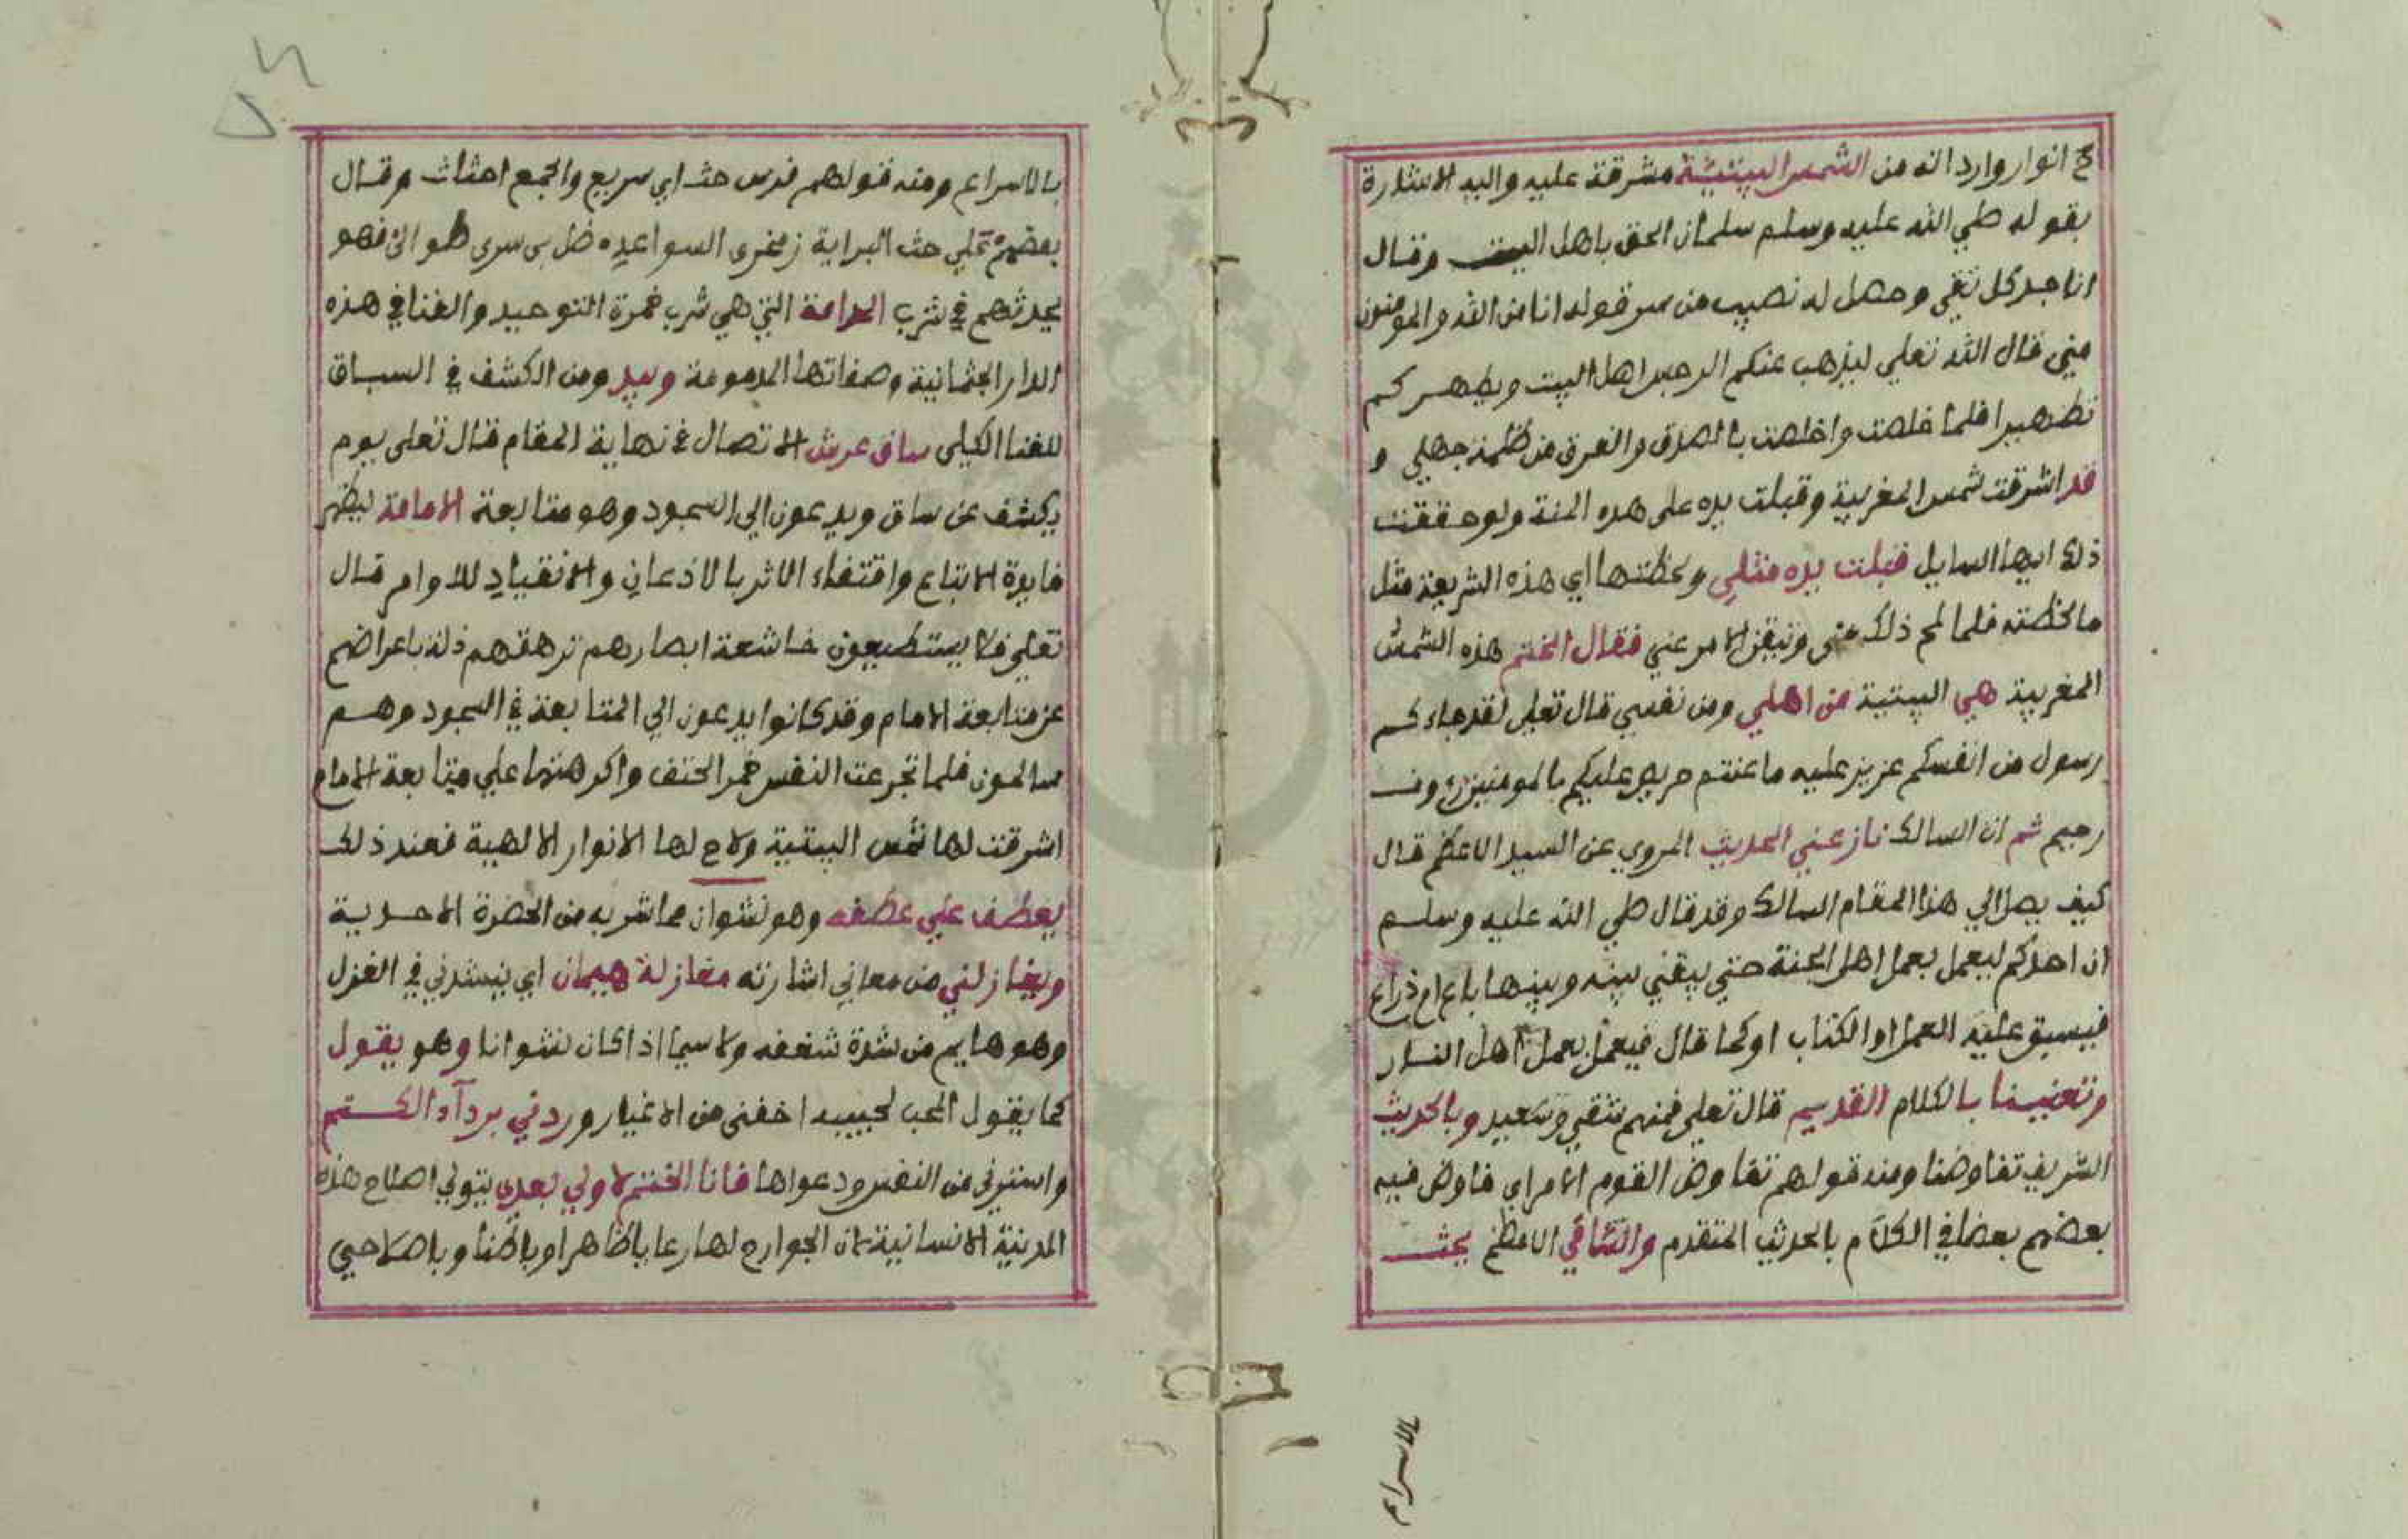 انوار وارداته من الشمس البيتية مشرقة عليه واليه الاشارة
بقوله صلي الله عليه وسلم سلمان الحق باهل البيت وقال
انا جد كل تقي وحصل له نصيب من سر قوله انا من الله والمومنون
مني قال الله تعلي ليذهب عنكم الرجس اهل البيت ويطهركم
تطهيرا فلما خلصت واخلصت بالصدق والغرق من ظلمة جهلي و
قد اشرقت شمس المغربية وقبلت يده على هذه المنة ولو حققت
ذلك ايها السايل قبلت يده مثلي ولحظتها اي هذه الشريعة مثل
ما لحظته فلما لمح ذلك مني وتيقن الامر عني فقال الختم هذه الشمس
المغربية هي البيتية من اهلي ومن نفسي قال تعلي لقد جاءكم
رسول من انفسكم عزيز عليه ما عنتم حريص عليكم بالمومنين روف
رحيم ثم ان السالك نازعني الحديث المروي عن السيد الاعظم قال
كيف يصل الي هذا المقام السالك وقد قال صلي الله عليه وسلم
ان احدكم ليعمل بعمل اهل الجنة حتي يبقي بينه وبينها باع او ذراع
فيسبق عليه العمل او الكتاب او كما قال فيعمل بعمل اهل النار
وتغنينا بالكلام القديم قال تعلي فمنهم شقي وسعيد وبالحديث
الشريف تفاوضنا ومنه قولهم تفاوض القوم الامر اي فاوض فيه
بعضهم بعضا في الكلام بالحديث المتقدم والساقي الاعظم يحث
بالاسراع
بالاسراع ومنه قولهم فرس حث اي سريع والجمع احثاث وقال
بعضهم علي حث البراية زمخري السواعده ظل بي سري طوال فهو
يحدثهم في شرب المدامة التي هي شرب خمرة التوحيد والفنا في هذه
الدار الجثمانية وصفاتها المذمومة وبيد ومن الكشف في السباق
للفنا الكيلي ساق عرش الاتصال في نهاية المقام قال تعلى يوم
يكشف عن ساق ويدعون الي السجود وهو متابعة الامامة ليظهر
فايدة الاتباع واقتفاء الاثر بالاذعان والانقياد للاوامر قال
تعلي فلا يستطيعون خاشعة ابصارهم ترهقهم ذلة باعراضهم
عن متابعة الامام وقد كانوا يدعون الي المتابعة في السجود وهم
سالمون فلما تجرعت النفس خمر الحتف واكرهتها علي متابعة الامام
اشرقت لها شمس البيتية ولاح لها الانوار الالهية فعند ذلك
يعطف علي عطفه وهو نشوان مما شربه من الحضرة الاحدية
ويغازلني من معاني اشارته مغازلة هيمان اي ينشدني في الغزل
وهو هايم من شدة شغفه ولا سيما اذا كان نشوانا وهو يقول
كما يقول المحب لحبيبه اخفني من الاغيار وردني برداء الكتم
واسترني من النفس ودعواها فانا الختم لا ولي بعدي يتولي اصلاح هذه
المدينة الانسانية لان الجوارح لها رعايا ظاهرا وباطنا وباصلاحي